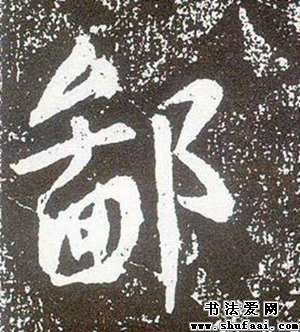 鄙
书法爱网
www.shufaai.com